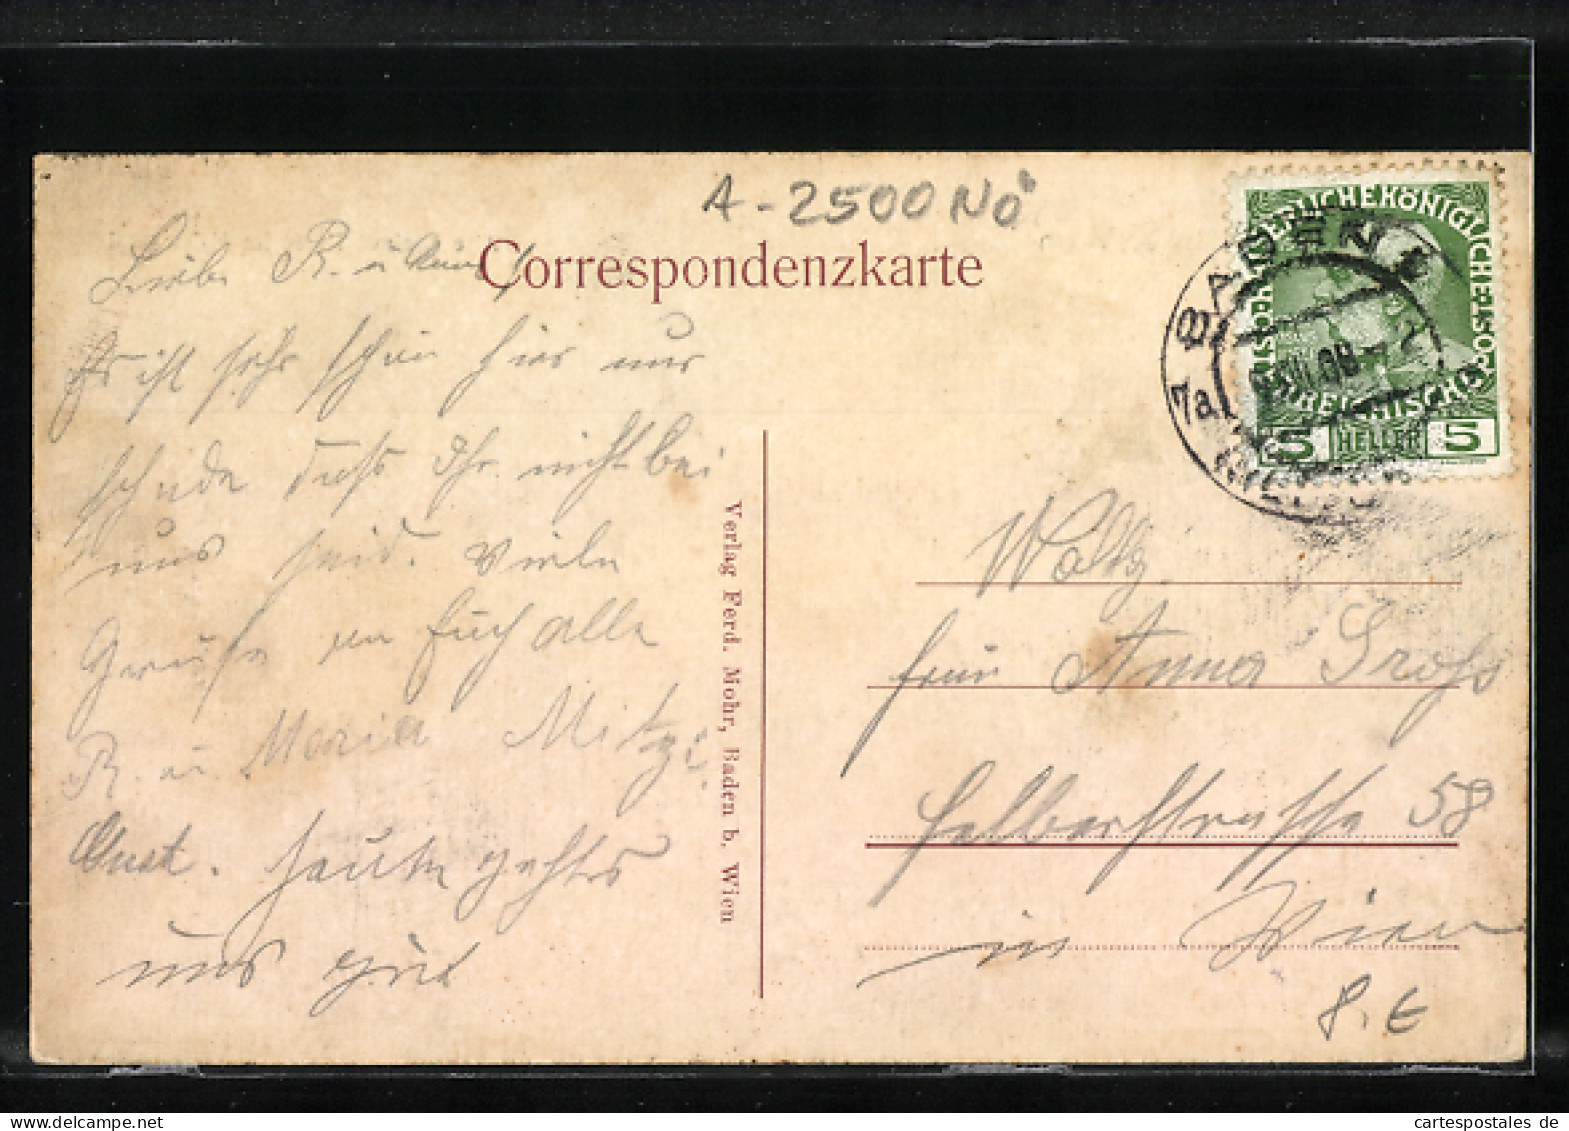 A-2500 NÖ
Correspondenzkarte
Liebe R. u
Es ist sehr schön hier nur
schade dass Ihr nicht bei
uns seid. Viele
Grüße an Euch alle
R. u Maria Mitzi
heute gehts
uns gut
Verlag Ferd. Mohr, Baden b. Wien
KAISERLICHE KÖNIGLICHE
ÖSTERREICHISCHE
5 HELLER 5
BADEN
7a
Frau Anna Gross
Halberstrasse 58
in Wien
8.€
delcampe.net
cartespostales de